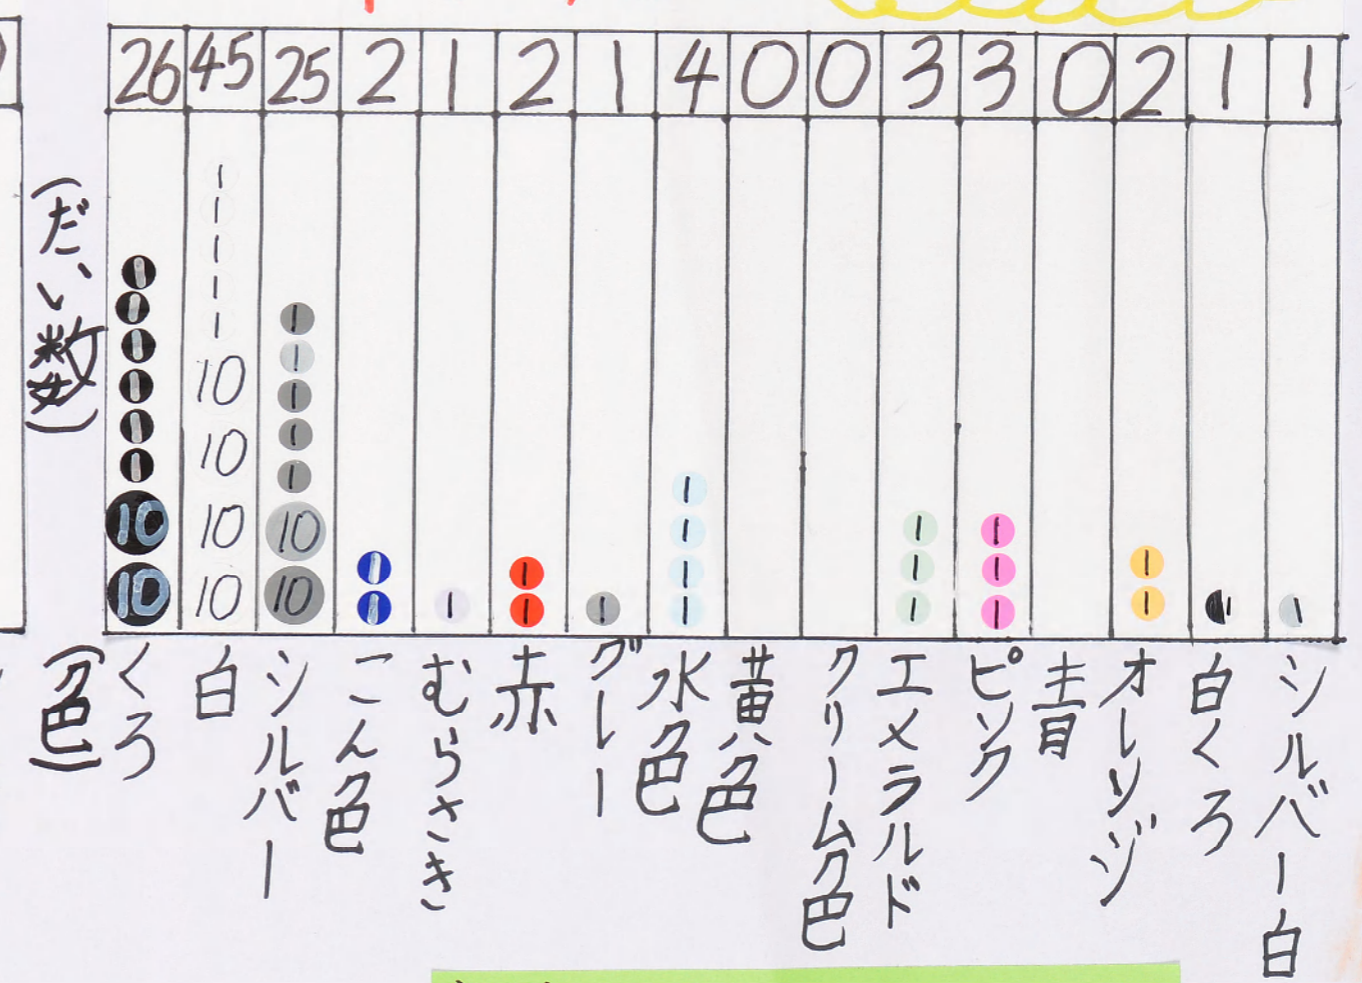 26 45 25 2 1 2 1 4 0 0 3 3 0 2 1 1
(だい数)
1 1 1 1 1 1 10 10
1 1 1 1 1 10 10 10 10
1 1 1 1 1 10 10
1 1
1
1 1
1
1 1 1 1
1 1 1
1 1 1
1 1
1
1
(色)
くろ
白
シルバー
こん色
むらさき
赤
グレー
水色
黄色
クリーム色
エメラルド
ピンク
青
オレンジ
白くろ
シルバー白